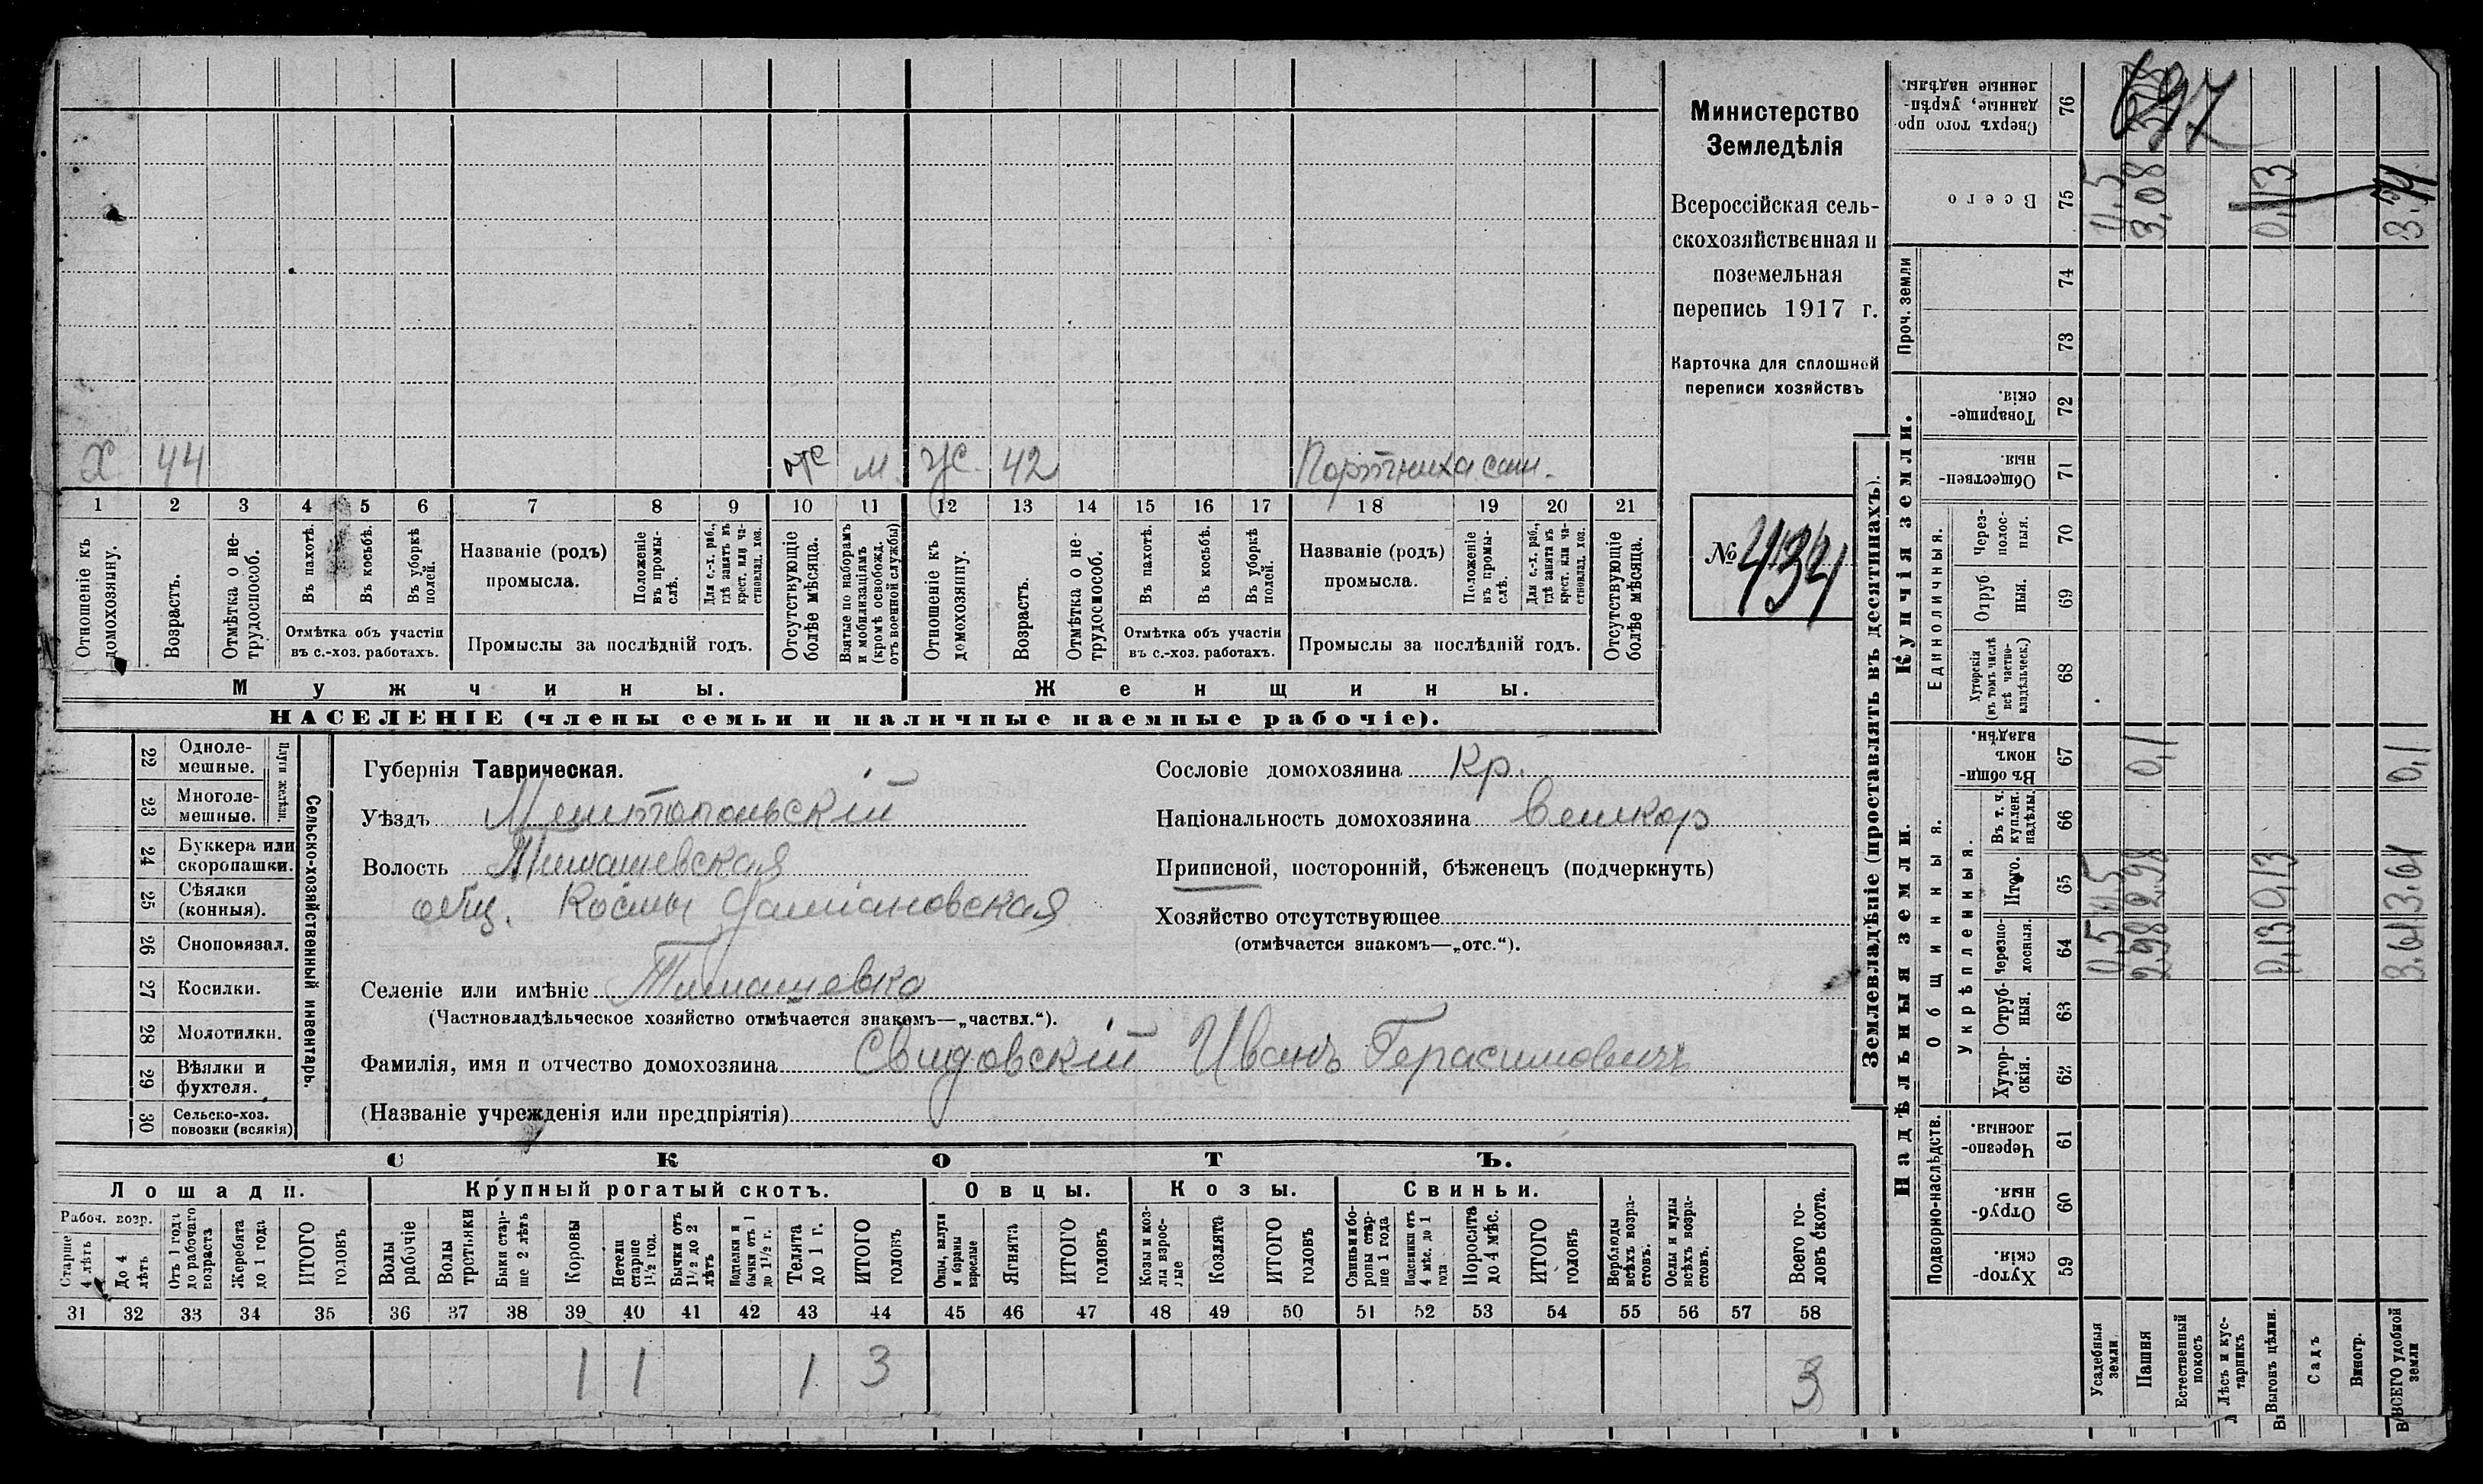 Х 44 отс м. ж. 42 Портниха сам.
1 2 3 4 5 6 7 8 9 10 11 12 13 14 15 16 17 18 19 20 21
Отношеніе къ домохозяину.
Возрастъ.
Отмѣтка о не-трудоспособ.
Въ пахотѣ.
Въ косьбѣ.
Въ уборкѣ полей.
Отмѣтка объ участіи
въ с.-хоз. работахъ.
Названіе (родъ)
промысла.
Положеніе въ промы-слѣ.
Для с.-х. раб., гдѣ занятъ въ крест. или ча-стновлад. хоз.
Промыслы за послѣдній годъ.
Отсутствующіе болѣе мѣсяца.
Взятые по наборамъ и мобилизаціямъ (кромѣ освобожд. отъ военной службы)
Отношеніе къ домохозяину.
Возрастъ.
Отмѣтка о не-трудоспособ.
Въ пахотѣ.
Въ косьбѣ.
Въ уборкѣ полей.
Отмѣтка объ участіи
въ с.-хоз. работахъ.
Названіе (родъ)
промысла.
Положеніе въ промы-слѣ.
Для с.-х. раб., гдѣ занята въ крест. или ча-стновлад. хоз.
Промыслы за послѣдній годъ.
Отсутствующіе болѣе мѣсяца.
Мужчины. Женщины.
НАСЕЛЕНІЕ (члены семьи и наличные наемные рабочіе).
Министерство
Земледѣлія
Всероссійская сель-
скохозяйственная и
поземельная
перепись 1917 г.
Карточка для сплошной
переписи хозяйствъ
№ 434
Сельско-хозяйственный инвентарь.
Плуги желѣзн.
22 Одноле-мешные.
23 Многоле-мешные.
24 Буккера или скоропашки.
25 Сѣялки (конныя).
26 Сноповязал.
27 Косилки.
28 Молотилки.
29 Вѣялки и фухтеля.
30 Сельско-хоз. повозки (всякія)
Губернія Таврическая.
Уѣздъ Мелитопольскій
Волость Тимашевская
общ. Космы Даміановская
Селеніе или имѣніе Тимашевка
(Частновладѣльческое хозяйство отмѣчается знакомъ—„частвл.“).
Фамилія, имя и отчество домохозяина Свидовскій Иванъ Герасимовичъ
(Названіе учрежденія или предпріятія)
Сословіе домохозяина Кр.
Національность домохозяина Великор
Приписной, посторонній, бѣженецъ (подчеркнуть)
Хозяйство отсутствующее
(отмѣчается знакомъ—„отс.“).
СКОТЪ.
Лошади. Крупный рогатый скотъ. Овцы. Козы. Свиньи.
Рабоч. возр.
Старше 4 лѣтъ
До 4 лѣтъ
Отъ 1 года до рабочаго возраста
Жеребята до 1 года
ИТОГО головъ
Волы рабочіе
Волы третьяки
Быки стар-ше 2 лѣтъ
Коровы
Нетели старше 1½ год.
Бычки отъ 1½ до 2 лѣтъ
Подтелки и бычки отъ 1 до 1½ г.
Телята до 1 г.
ИТОГО головъ
Овцы, валухи и бараны взрослые
Ягнята
ИТОГО головъ
Козы и коз-лы взрос-лые
Козлята
ИТОГО головъ
Свиньи и бо-ровы стар-ше 1 года
Подсвинки отъ 4 мѣс. до 1 года
Поросята до 4 мѣс.
ИТОГО головъ
Верблюды всѣхъ возра-стовъ.
Ослы и мулы всѣхъ возра-стовъ.
Всего го-ловъ скота.
31 32 33 34 35 36 37 38 39 40 41 42 43 44 45 46 47 48 49 50 51 52 53 54 55 56 57 58
1 1 1 3 3
Землевладѣніе (проставлять въ десятинахъ).
Купчія земли.
Надѣльныя земли.
697
76 Сверхъ того про-данные, укрѣп-ленные надѣлы.
75 Всего 0,5 3,08 0,13 3,71
Проч. земли
74
73
72 Товарище-скія.
71 Обществен-ныя.
Единоличныя.
70 Через-полос-ныя.
69 Отруб-ныя.
68 Хуторскія (въ томъ числѣ всѣ частно-владѣльческ.)
Общинныя.
67 Въ общи-номъ владѣн. 0,1 0,1
Укрѣпленныя.
66 Въ т. ч. куплен. надѣлы.
65 Итого. 0,5 2,98 0,13 3,61
64 Черезпо-лосныя. 0,5 2,98 0,13 3,61
63 Отруб-ныя.
62 Хутор-скія.
Подворно-наслѣдств.
61 Черезпо-лосныя.
60 Отруб-ныя.
59 Хутор-скія.
Усадебныя земли
Пашня
Естественный покосъ
Лѣсъ и кус-тарникъ
Выгонъ цѣлин.
Садъ
Виногр.
ВСЕГО удобной земли